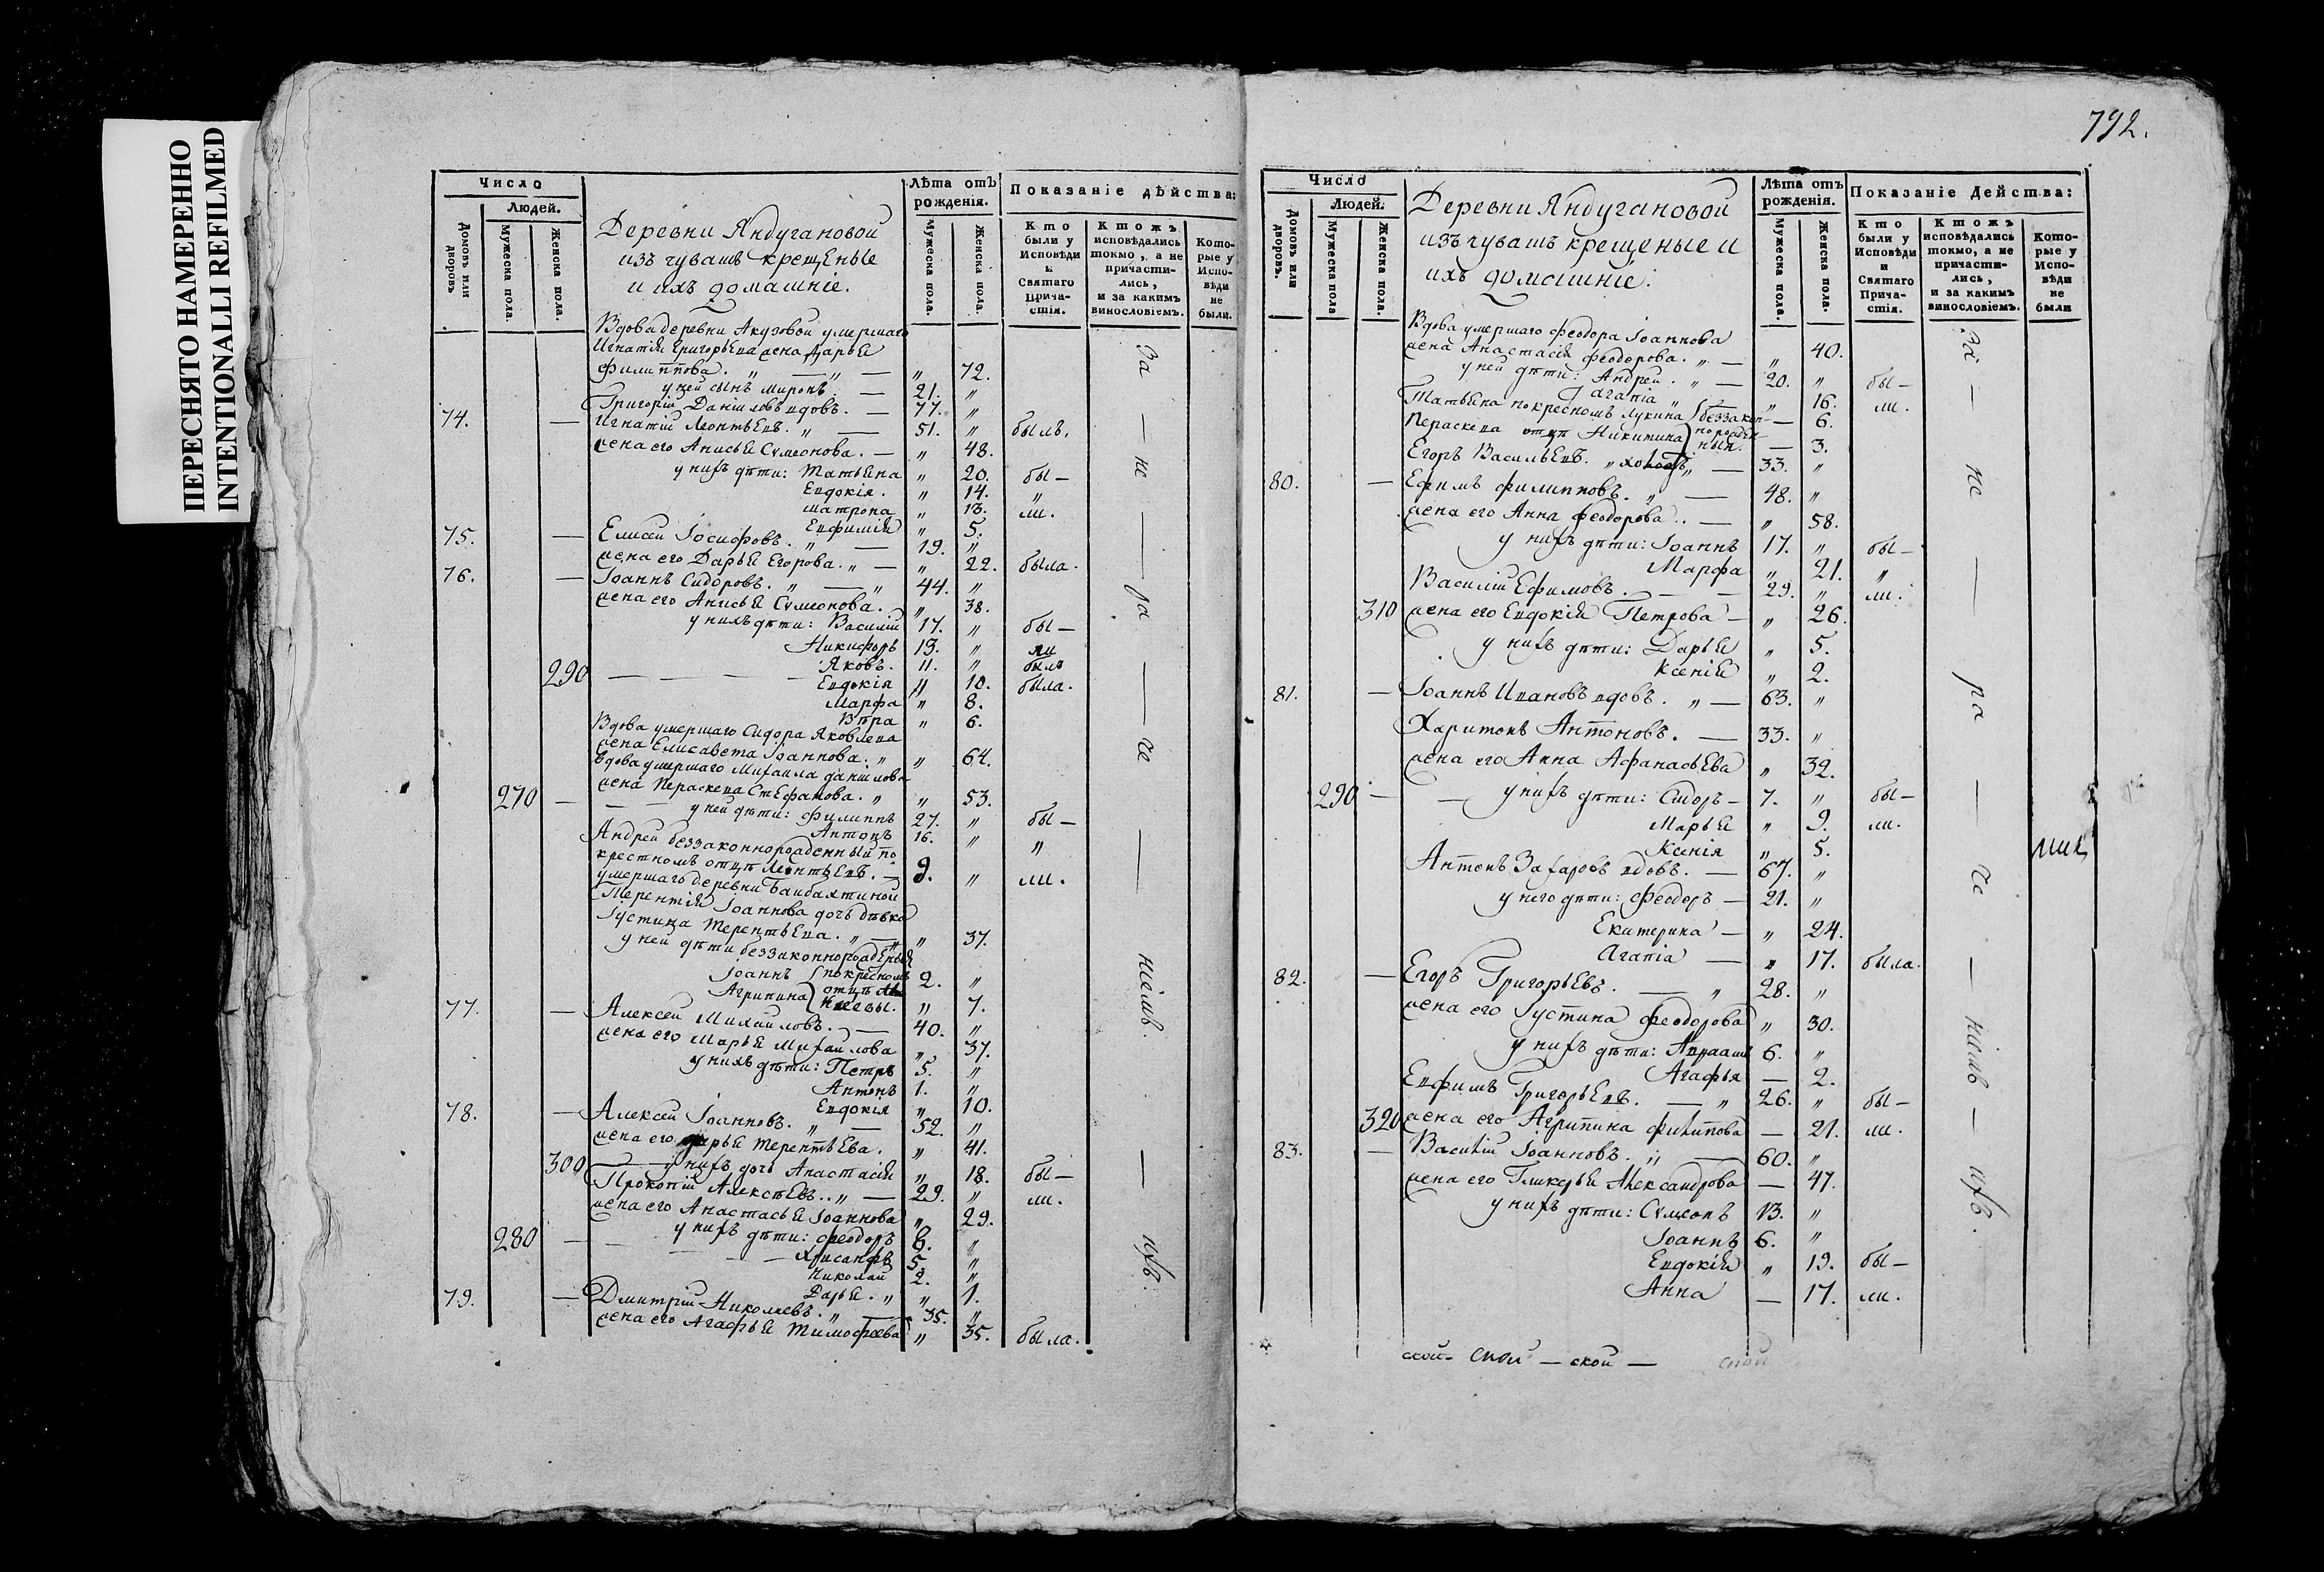 ПЕРЕСНЯТО НАМЕРЕННО
INTENTIONALLI REFILMED
Число
Людей.
Домовъ или дворовъ
Мужеска пола.
Женска пола.
Деревни Яндугановой
изъ чувашъ крещеные
и ихъ домашніе.
Лѣта отъ рожденія.
Мужеска пола.
Женска пола.
Показаніе дѣйства:
Кто были у Исповѣди и Святаго Прича- стія.
Ктожъ исповѣдались токмо, а не причасти- лись, и за какимъ винословіемъ.
Кото- рые у Испо- вѣди не были.
Вдова деревни Акузовой умершаго
Игнатія Григорьева жена Дарья
Филиппова. " — " — " 72.
у ней сынъ Миронъ — 21. "
Григорій Даніиловъ вдовъ. — 77. "
74. — Игнатій Леонтьевъ. " — 51. " былъ.
жена его Анисья Сумеонова. — " 48.
у нихъ дѣти: Татьяна " 20. бы—
Евдокія. " 14. "
Матрона " 13. ли.
Евфимія " 5.
75. — Елисей Іосифовъ. " — 19. "
жена его Дарья Егорова. " — " 22. была.
76. — Іоаннъ Сидоровъ. " — " 44. "
жена его Анисья Сумеонова. " 38.
у нихъ дѣти: Василій 17. " бы—
Никифоръ 13. " ли
290 — — — — Яковъ. 11. " былъ
Евдокія " 10. была.
Марфа " 8.
Вѣра " 6.
Вдова умершаго Сидора Яковлева
жена Елисавета Іоаннова. " " 64.
Вдова умершаго Михаила Даніилова
270 — жена Параскева Стефанова. " " 53.
у ней дѣти: Филиппъ 27. " бы—
Антонъ 16. " "
Андрей беззаконнорожденный по
крестномъ отцѣ Леонтьевъ. — 9. " ли.
умершаго деревни Байбахтиной
Терентія Іоаннова дочь дѣвка
Іустина Терентьева. " — " " 37.
у ней дѣти беззаконнорожденыя
Іоаннъ по кресномъ 2. "
Агрипина отцѣ " 7.
77. — Алексей Михайловъ. — 40. "
жена его Марья Михайлова " 37.
у нихъ дѣти: Петръ 5. "
Антонъ 1. "
Евдокія " 10.
78. — Алексей Іоанновъ. " — 52. "
жена его Дарья Терентьева. " 41.
300 — у нихъ дочь Анастасія " 18. бы—
Прокопій Алексѣевъ. " — 29. " ли.
жена его Анастасья Іоаннова " 29.
280 — у нихъ дѣти: Феодоръ 8. "
Хрисанфъ 5. "
Николай 2. "
Дарья. " " 1.
79. — Дмитрій Николаевъ. " — 35. "
жена его Агафья Тимофеева " 35. была.
За — не — ра — че — ніемъ. — ихъ.
792.
Число
Людей.
Домовъ или дворовъ.
Мужеска пола
Женска пола.
Деревни Яндугановой
изъ чувашъ крещеные и
ихъ домашніе.
Лѣта отъ рожденія.
Мужеска пола.
Женска пола.
Показаніе Действа:
Кто были у Исповѣди и Святаго Прича- стія.
Ктожъ исповѣдались токмо, а не причасти- лись, и за какимъ винословіемъ.
Кото- рые у Испо- вѣди не были
Вдова умершаго Феодора Іоаннова
жена Анастасія Феодорова. " — " 40.
у ней дѣти: Андрей. " — 20. " бы—
Агапіа " — " 16. ли.
Татьяна по кресномъ Лукина беззакон- — 6.
Параскева отцѣ Никитина норожден- ныя. — 3.
Егоръ Васильевъ. " холостъ " — 33. "
80. — Ефимъ Филипповъ. " — 48. "
жена его Анна Феодорова. — " 58.
у нихъ дѣти: Іоаннъ 17. " бы—
Марфа " 21. "
Василій Ефимовъ. — — 29. " ли.
310 жена его Евдокія Петрова — " 26.
у нихъ дѣти: Дарья " 5.
Ксенія " 2.
81. — Іоаннъ Ивановъ вдовъ. " — 63. "
Харитонъ Антоновъ. — 33. "
жена его Анна Афанасьева " 32.
290 — — у нихъ дѣти: Сидоръ — 7. " бы—
Марья " 9. ли.
Ксенія " 5.
Антонъ Захаровъ вдовъ. — 67. "
у него дѣти: Феодоръ — 21. "
Екатерина — " 24.
Агапіа — " 17. была.
82. — Егоръ Григорьевъ. — " 28. "
жена его Іустина Феодорова " 30.
у нихъ дѣти: Авраамъ 6. "
Агафья — 2.
Евфимъ Григорьевъ. — " 26. " бы—
320 жена его Агрипина Филипова — 21. ли.
83. — Василій Іоанновъ. " — 60. "
жена его Гликерья Александрова — 47.
у нихъ дѣти: Сумеонъ 13. "
Іоаннъ 6. "
Евдокія " 19. бы—
Анна — 17. ли.
За — не — ра — че — ніемъ — ихъ.
ской - ской — ской — ской